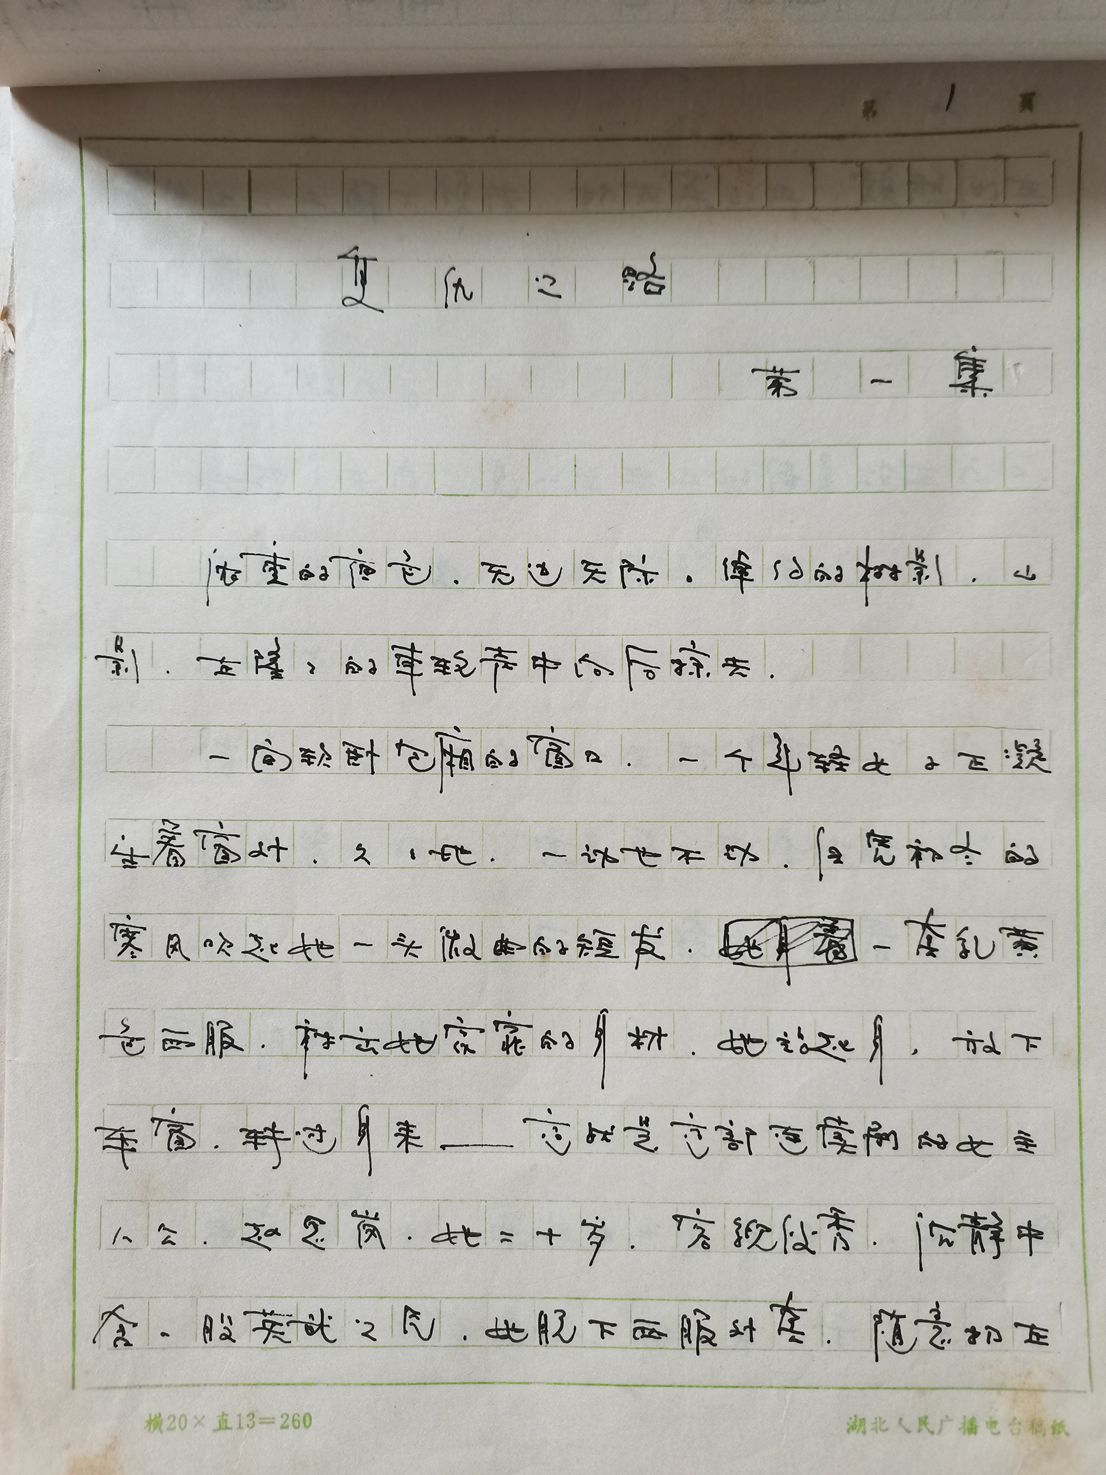 第 1 頁
复仇之路
第一集
浓重的夜色,无边无际。绰约的树影,山
影,在隆隆的车轮声中向后掠去。
一间软卧包厢的窗口,一个年轻女子正凝
注着窗外,久久地,一动也不动,任凭初冬的
寒风吹起她一头微曲的短发。她身着一套乳黄
色西服,衬出她窈窕的身材,她站起身,放下
车窗,转过身来——这就是这部连续剧的女主
人公,赵思岗。她二十岁,容貌俊秀,沉静中
含一股英武之气,她脱下西服外套,随意扔在
横20×直13=260
湖北人民广播电台稿纸